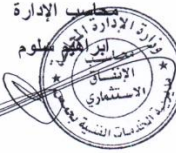 محاسب الإدارة
ابراهيم سلوم
وزارة الإدارة
محاسب
الإنفاق
الاستثماري
مديرية الخدمات الفنية